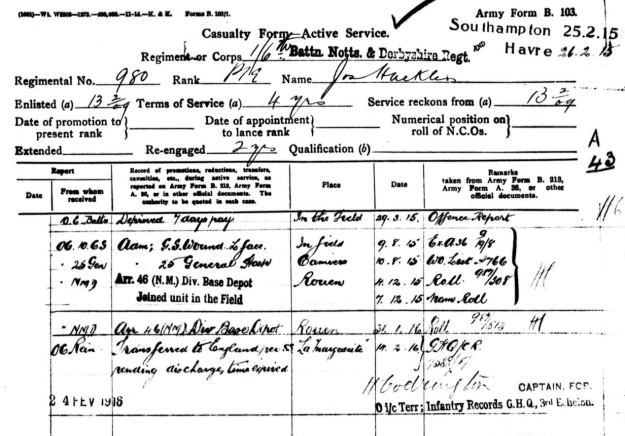 Forms B. 103/1.
Army Form B. 103.
Casualty Form—Active Service.
Southampton 25.2.15
Havre 26.2.15
Regiment or Corps 1/6th Battn. Notts. & Derbyshire Regt.
Regimental No. 980 Rank Pte Name Jos Hackles
Enlisted (a) 13 2/09 Terms of Service (a) 4 yrs Service reckons from (a) 13 2/09
Date of promotion to present rank Date of appointment to lance rank Numerical position on roll of N.C.Os.
Extended Re-engaged 2 yrs Qualification (b)
A
43
Report
Date
From whom received
Record of promotions, reductions, transfers, casualties, etc., during active service, as reported on Army Form B. 213, Army Form A. 36, or in other official documents. The authority to be quoted in each case.
Place
Date
Remarks taken from Army Form B. 213, Army Form A. 36, or other official documents.
O.C. Battn Deprived 7 days pay In the Field 29.3.15 Offence Report
Adm; G.S. Wound L face In field 9.8.15 Ex A36 9/8
25 Gen 25 General Hosp Camiers 10.8.15 W.O. List
NMD Arr. 46 (N.M.) Div. Base Depot Rouen 4.12.15 Roll 987/508
Joined unit in the Field 7.12.15 Nom Roll
NMD Arr 46 (NM) Div Base Depot Rouen 1.16 Roll
Transferred to England per SS "La Marguerite" 14.2.16
pending discharge, time expired
24 FEV 1916
CAPTAIN, FOR
O i/c Terr; Infantry Records G.H.Q., 3rd Echelon.